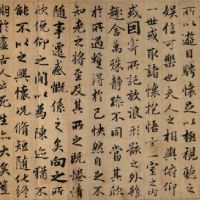 所以遊目騁懷足以極視聽之
娛信可樂也夫人之相與俯仰
一世或取諸懷抱悟言一室之內
或因寄所託放浪形骸之外雖
趣舍萬殊靜躁不同當其欣
於所遇暫得於己快然自足不
知老之將至及其所之既惓情
隨事遷感慨係之矣向之所
欣俛仰之間以為陳迹猶不
能不以之興懷況脩短隨化終
期於盡古人云死生亦大矣豈